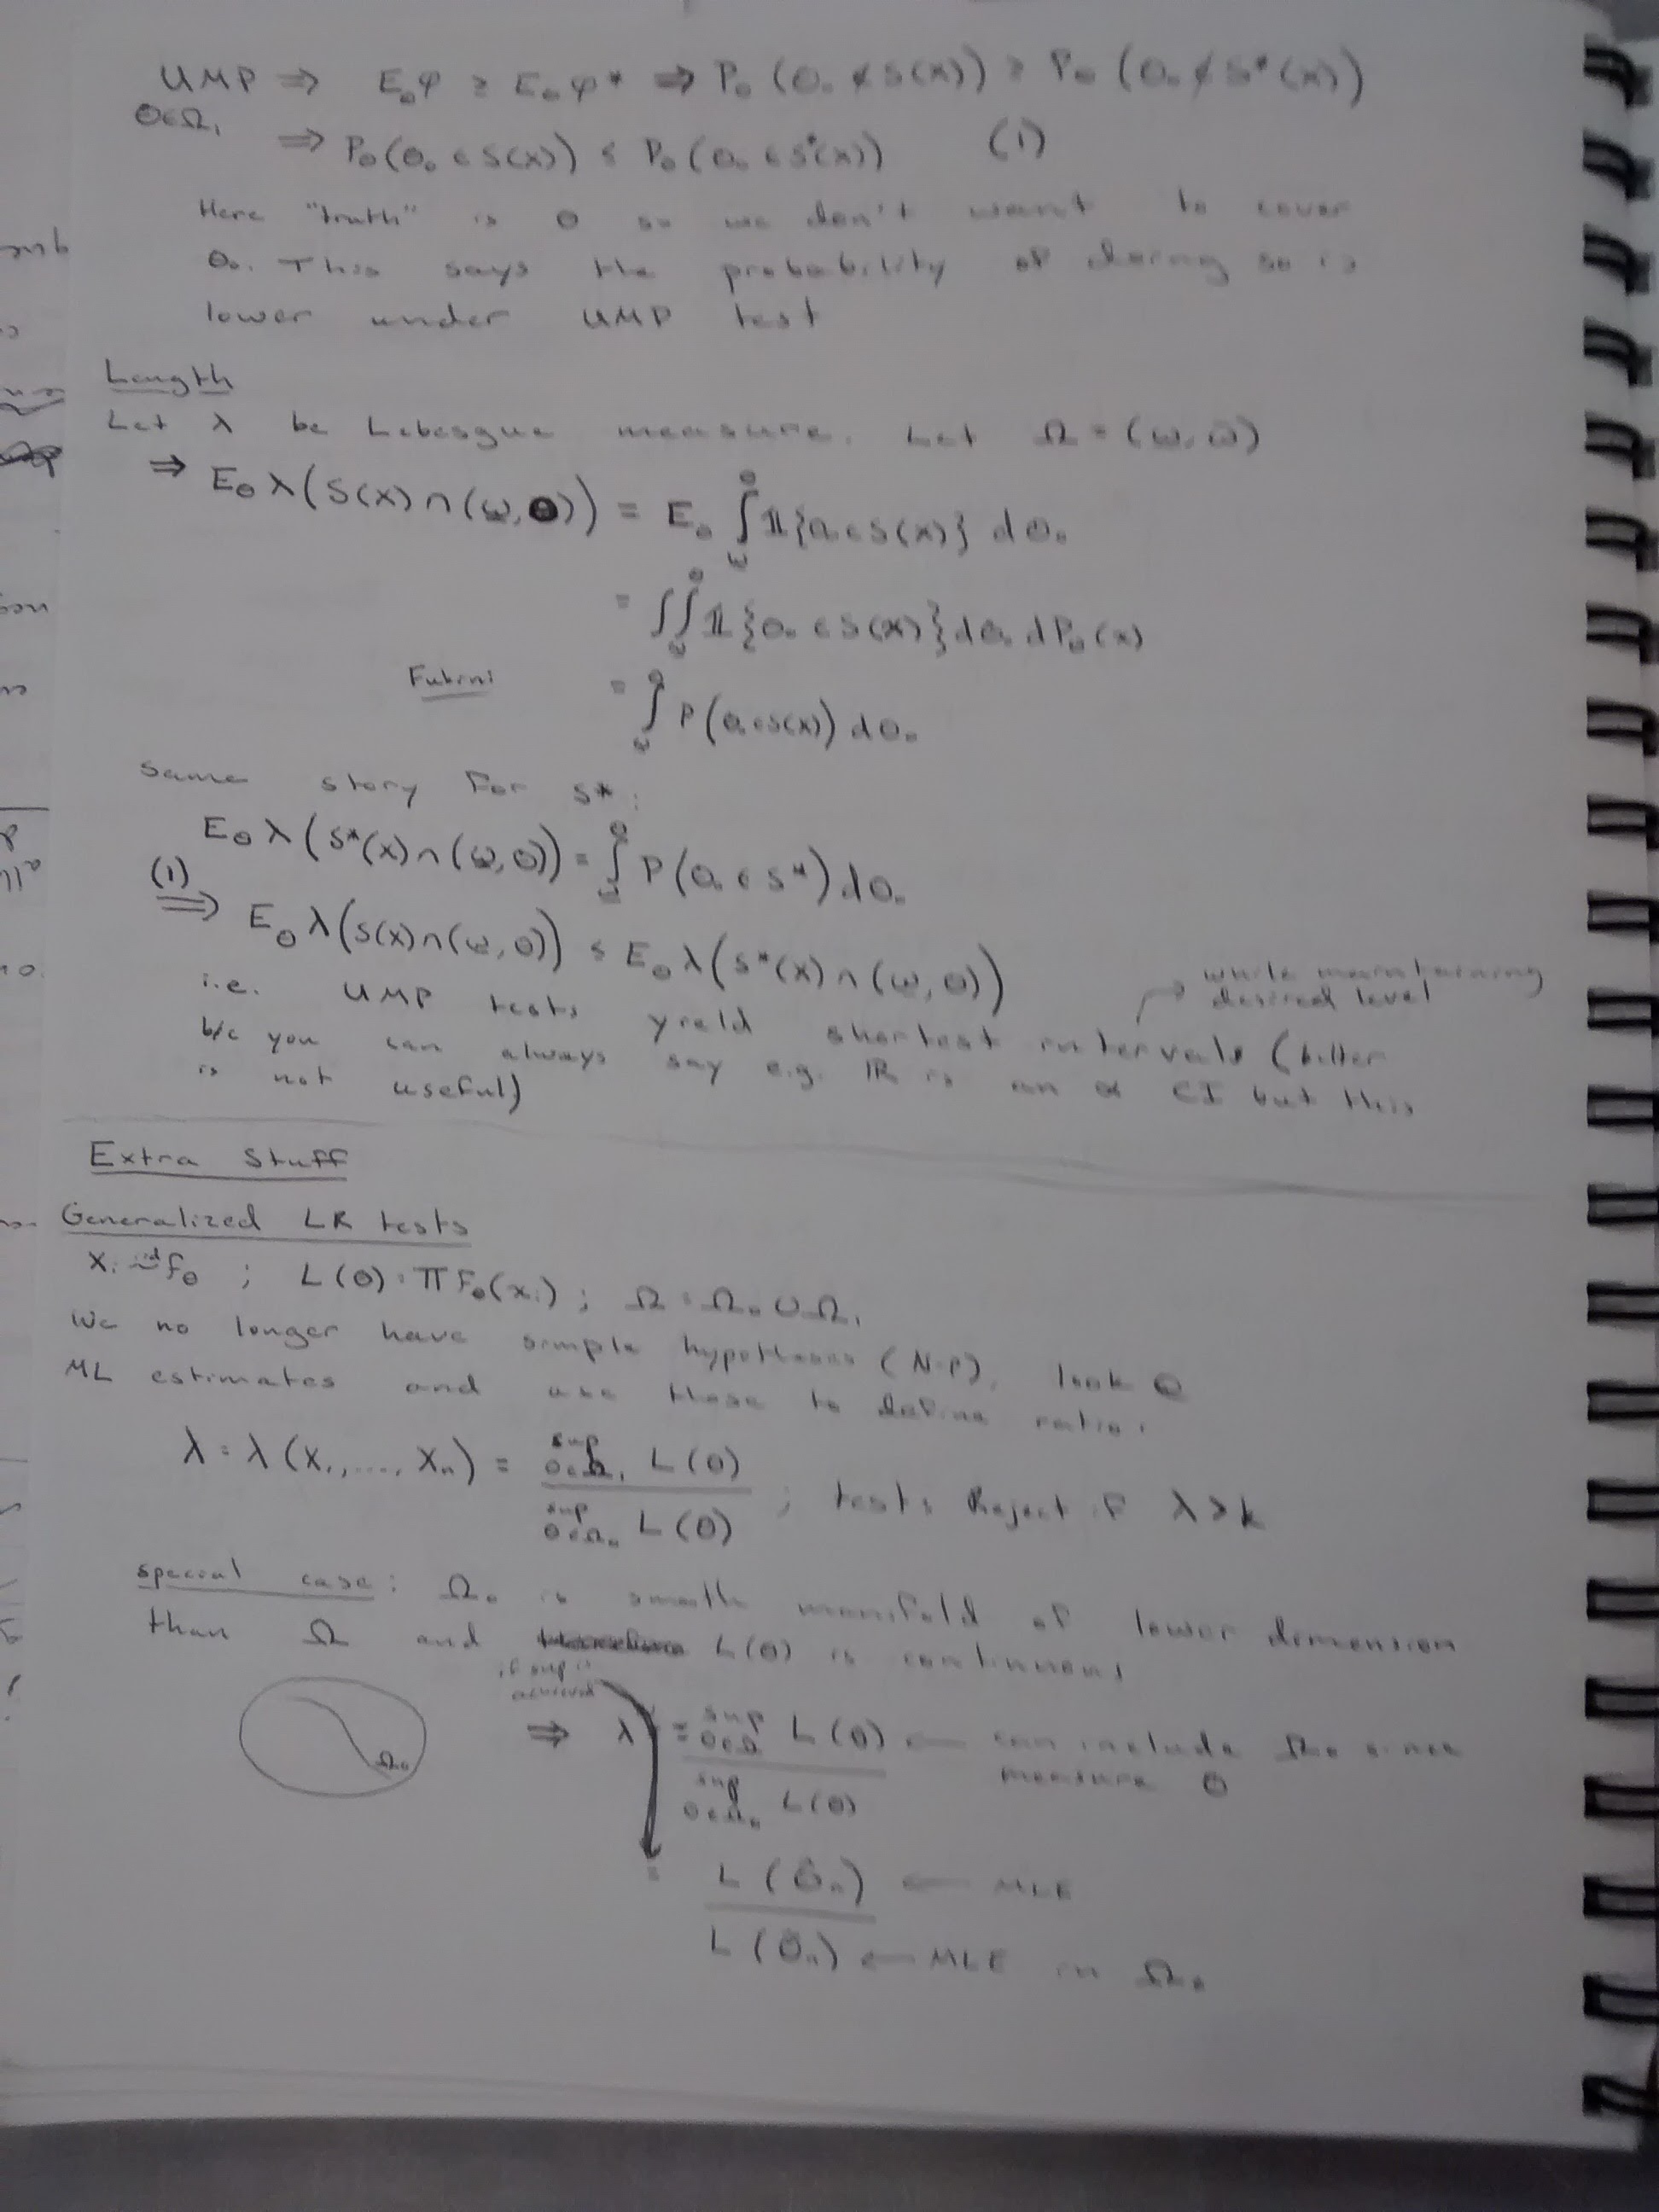 UMP ⇒ E_θ φ ≥ E_θ φ* ⇒ P_θ (θ₀ ∉ S(x)) ≥ P_θ (θ₀ ∉ S*(x))
θ∈Ω₁
⇒ P_θ(θ₀ ∈ S(x)) ≤ P_θ(θ₀ ∈ S*(x)) (1)
Here "truth" is θ so we don't want to cover
θ₀. This says the probability of doring so is
lower under UMP test
Length
Let λ be Lebesgue measure. Let Ω = (ω, ω̄)
⇒ E_θ λ(S(x) ∩ (ω, θ)) = E_θ ∫_ω^θ 𝟙{θ₀ ∈ S(x)} dθ₀
= ∫∫_ω^θ 𝟙{θ₀ ∈ S(x)} dθ₀ dP_θ(x)
Fubini = ∫_ω^θ P(θ₀ ∈ S(x)) dθ₀
Same story for S*:
E_θ λ(S*(x) ∩ (ω, θ)) = ∫_ω^θ P(θ₀ ∈ S*) dθ₀
(1) ⇒ E_θ λ(S(x) ∩ (ω, θ)) ≤ E_θ λ(S*(x) ∩ (ω, θ))
→ while maintaining
desired level
i.e. UMP tests yield shortest intervals (
b/c you can always say e.g. ℝ is an α CI but this
is not useful)
Extra Stuff
Generalized LR tests
X_i iid~ f_θ ; L(θ) = Π f_θ(x_i) ; Ω = Ω₀ ∪ Ω₁
We no longer have simple hypotheses (N-P), look @
ML estimates and use those to define ratio:
λ = λ(X₁, ..., X_n) = sup_{θ∈Ω₁} L(θ) / sup_{θ∈Ω₀} L(θ) ; tests Reject if λ > k
special case: Ω₀ is smooth manifold of lower dimension
than Ω and L(θ) is continuous
if sup is
achieved
Ω₀
⇒ λ = sup_{θ∈Ω} L(θ) / sup_{θ∈Ω₀} L(θ) ← can include Ω₀ since
measure 0
= L(θ̂_n) ← MLE
L(θ̃_n) ← MLE in Ω₀